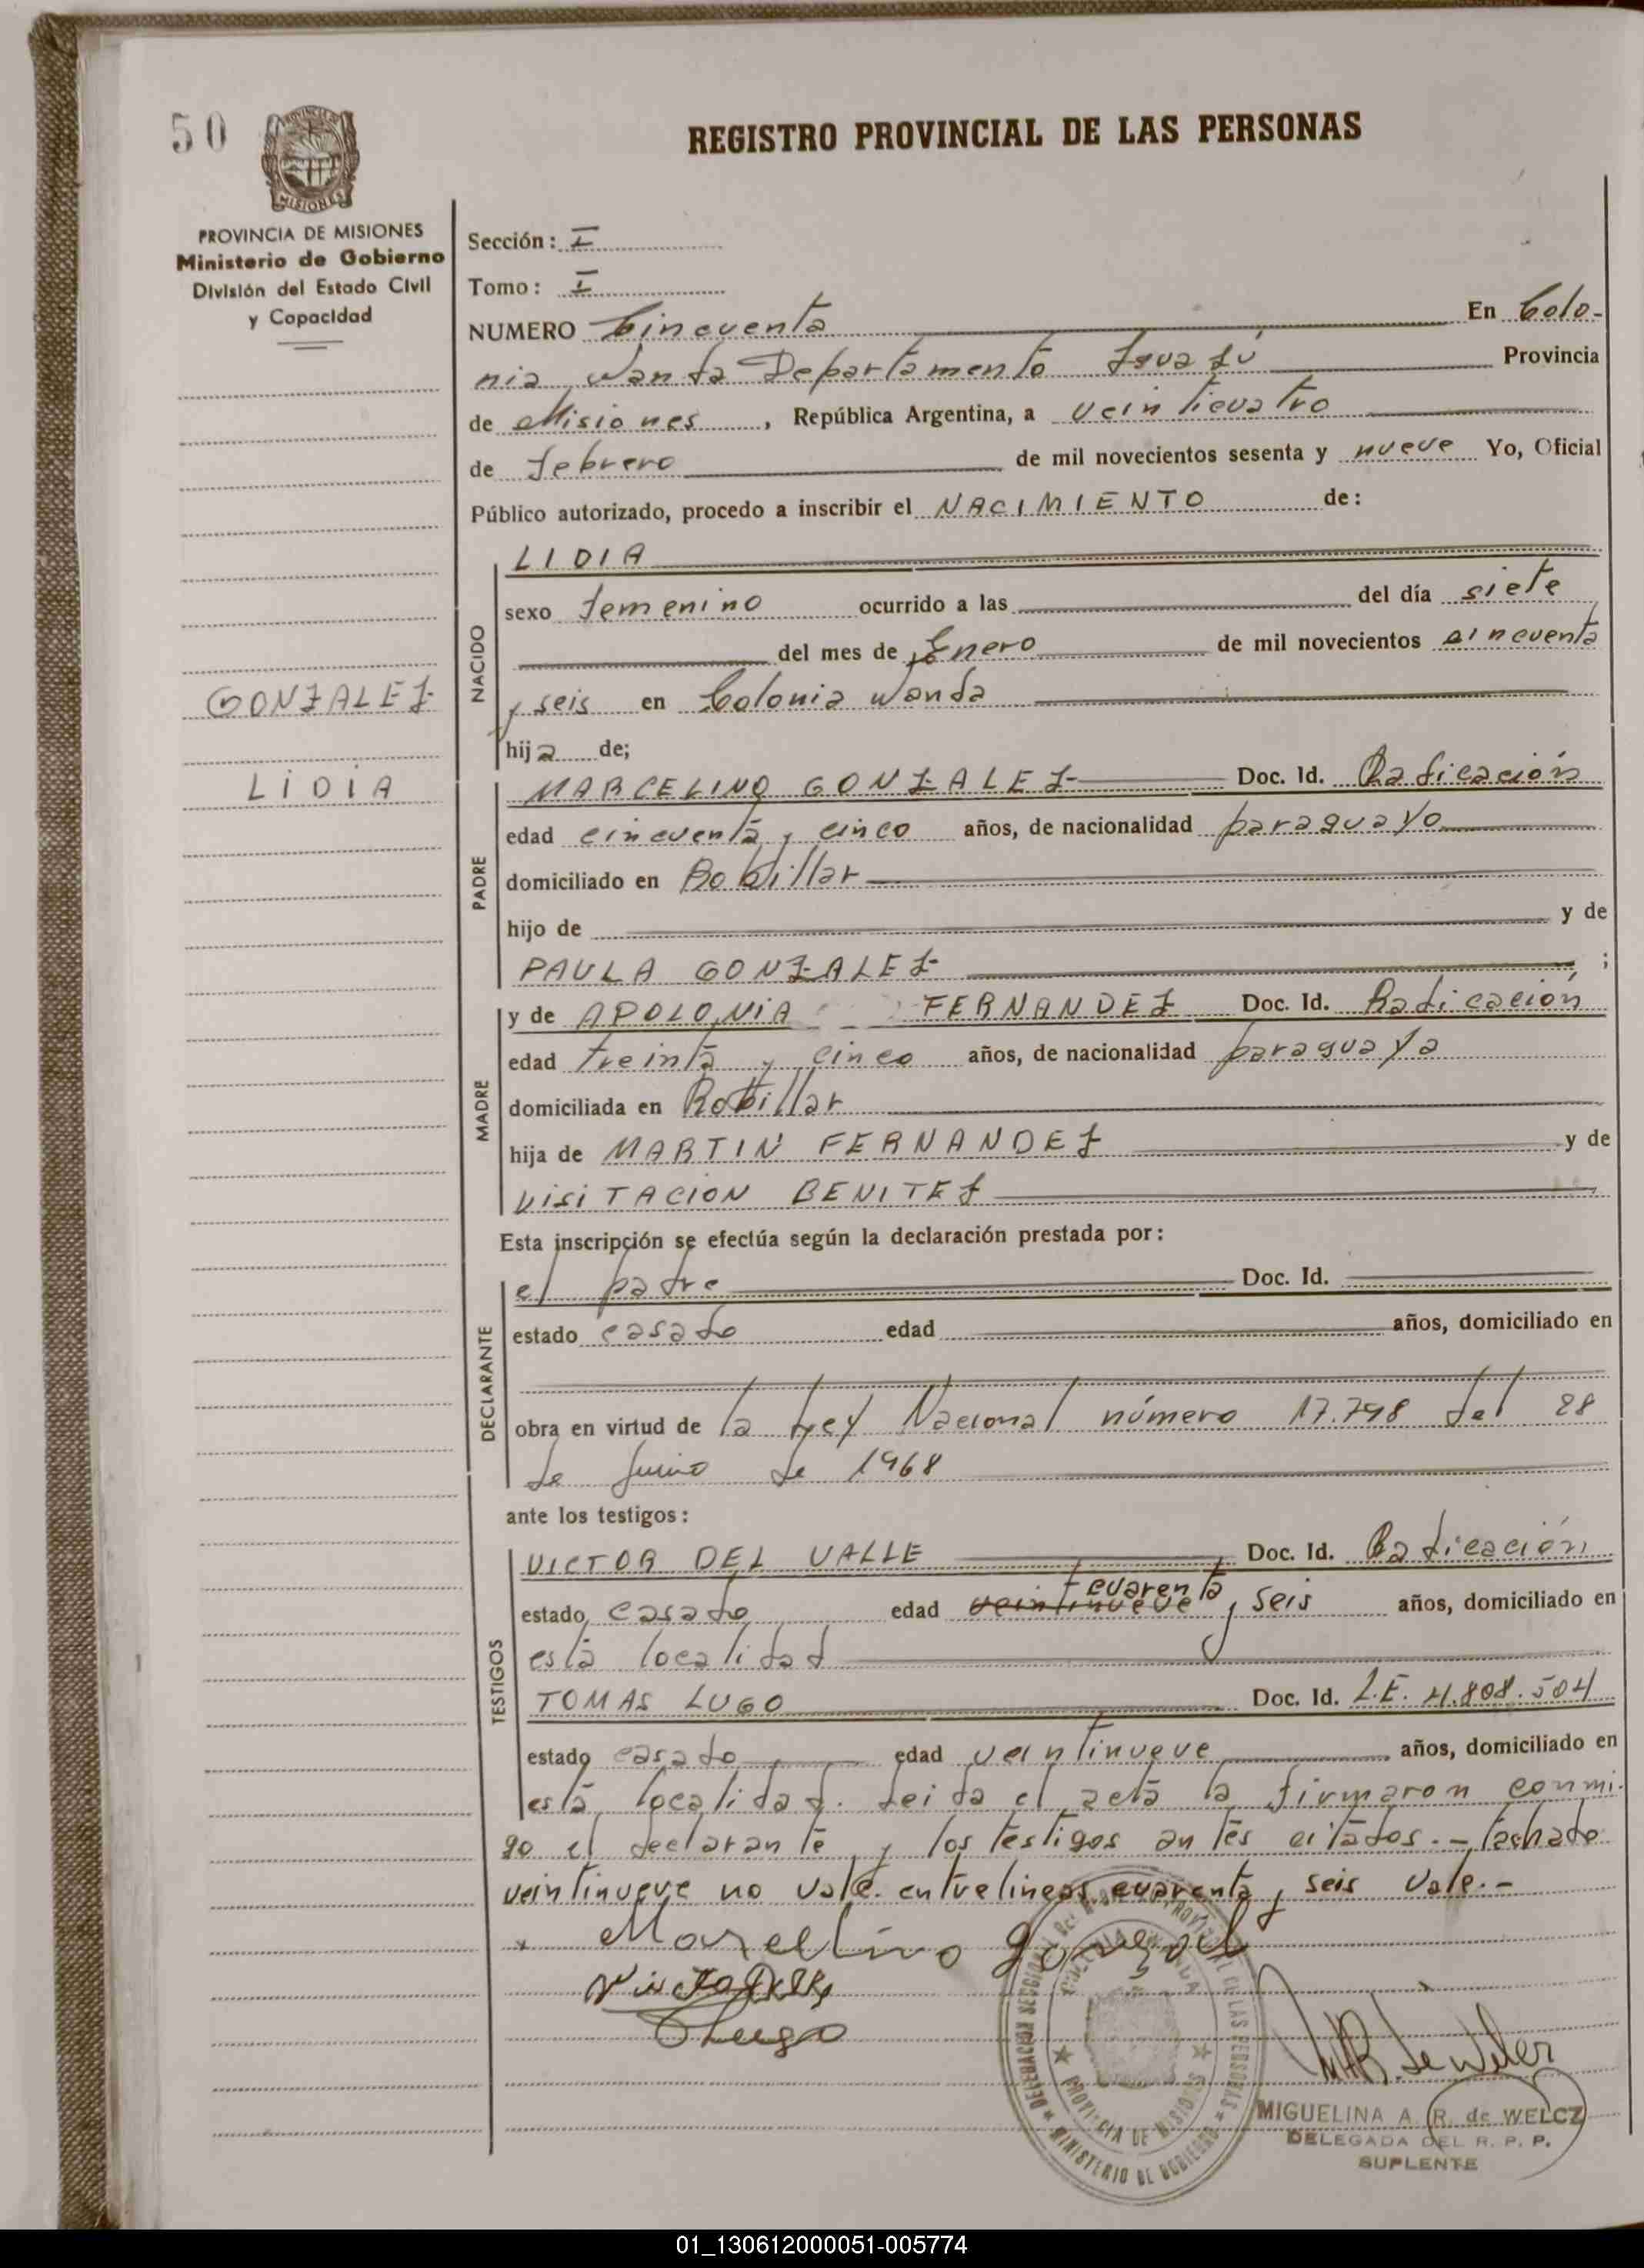 50
REGISTRO PROVINCIAL DE LAS PERSONAS
MISIONES
PROVINCIA DE MISIONES
Ministerio de Gobierno
División del Estado Civil
y Capacidad
GONZALEZ
LIDIA
Sección: I
Tomo: I
NUMERO Cincuenta En Colo-
nia Wanda Departamento Iguazú Provincia
de Misiones, República Argentina, a veinticuatro
de febrero de mil novecientos sesenta y nueve Yo, Oficial
Público autorizado, procedo a inscribir el NACIMIENTO de:
NACIDO
LIDIA
sexo femenino ocurrido a las del día siete
del mes de Enero de mil novecientos cincuenta
y seis en Colonia Wanda
hija de;
PADRE
MARCELINO GONZALEZ Doc. Id. Radicación
edad cincuenta y cinco años, de nacionalidad paraguayo
domiciliado en Bobillar
hijo de y de
PAULA GONZALEZ ;
MADRE
y de APOLONIA FERNANDEZ Doc. Id. Radicación
edad treinta y cinco años, de nacionalidad paraguaya
domiciliada en Bobillar
hija de MARTIN FERNANDEZ y de
VISITACION BENITEZ
Esta inscripción se efectúa según la declaración prestada por:
DECLARANTE
el padre Doc. Id.
estado casado edad años, domiciliado en
obra en virtud de la Ley Nacional número 17.798 del 28
de Junio de 1968
ante los testigos:
TESTIGOS
VICTOR DEL VALLE Doc. Id. Radicación
estado casado edad veintinueve cuarenta y seis años, domiciliado en
esta localidad
TOMAS LUGO Doc. Id. L.E. 4.808.504
estado casado edad veintinueve años, domiciliado en
esta localidad. Leida el acta la firmaron conmi-
go el declarante y los testigos antes citados.- tachado
veintinueve no vale. entrelineas cuarenta y seis vale.-
x Marcellino Gonzalez
TLugo
MAR. de Welcz
PROVINCIA DE MISIONES
MINISTERIO DE GOBIERNO
MIGUELINA A. R. de WELCZ
DELEGADA DEL R. P. P.
SUPLENTE
01_130612000051-005774